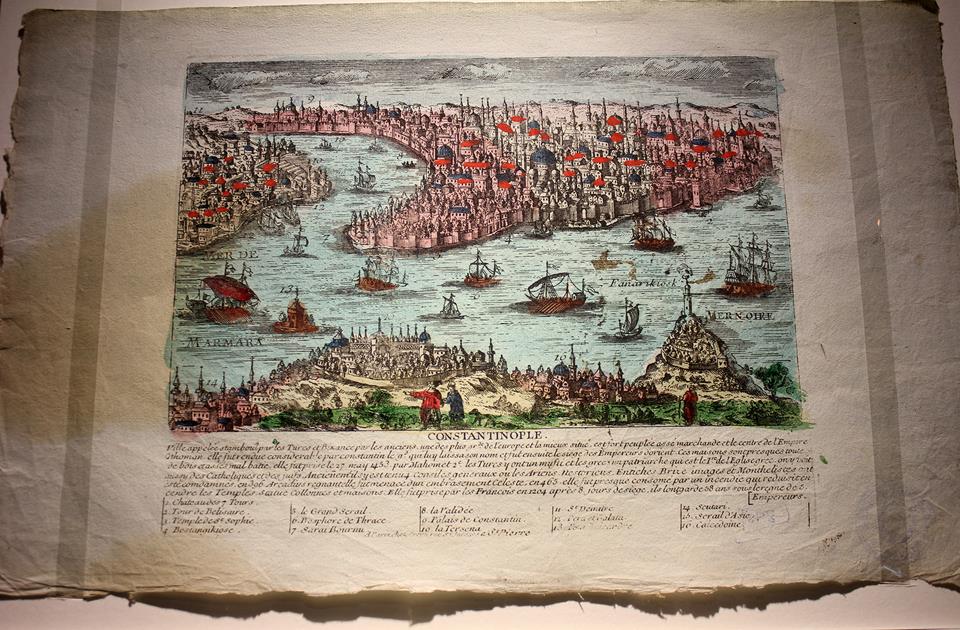 11
9
MER DE
Fanarikiosk
MER NOIRE
13
MARMARA
14
CONSTANTINOPLE.
Ville appelée stamboul par les Turcs et Bizance par les anciens, une des plus gr.des de l'europe et la mieux situé, est fort peuplée assé marchande et le centre de l'Empire
Othoman. elle fut rendue considerable par constantin le g.d qui luy laissa son nom et fut ensuite le siege des Empereurs d'orient. Ces maisons sont presques toute
de bois et assés mal batie, elle fut prise le 27 may 1453 par Mahomet 2.e les Turcs y ont un mufti et les grecs un patriarche qui est le 1.er de l'Eglise
aussi des Catholiques et des juifs Anciennem.t il s'y est tenu 4 Conciles generaux
condamnes. en 396 Arcadius regnant elle fut menacé d'un embrasement Celeste, en 463. elle fut presque consomé par un incendie qui reduisit en
cendre les Temples Statue Collonnes et maisons. Elle fut prise par les Francois en 1204 après 8 jours de siége, ils l'ont gardé 58 ans sous le regne de 5.
Empereurs.
1. Chateau des 7 Tours.
2. Tour de Belisaire.
3. Temple de S.te Sophie.
4. Bostangikiosk.
5. le Grand Serail
6. Bosphore de Thrace
7. Sarai Bournu
8. la Validée
9. Palais de Constantin.
10. la Tersena
11. S.t Demitre
12. Pera et Galata
13.
14. Scutari
15. Serail d'Asie
16. Calcedoine.
A Paris Chez